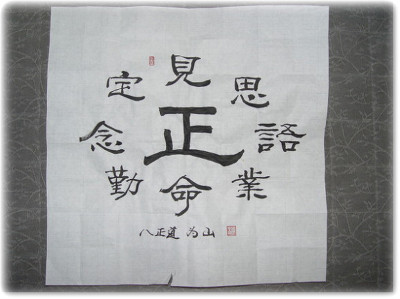 正
見
思
語
業
命
勤
念
定
八正道 為山